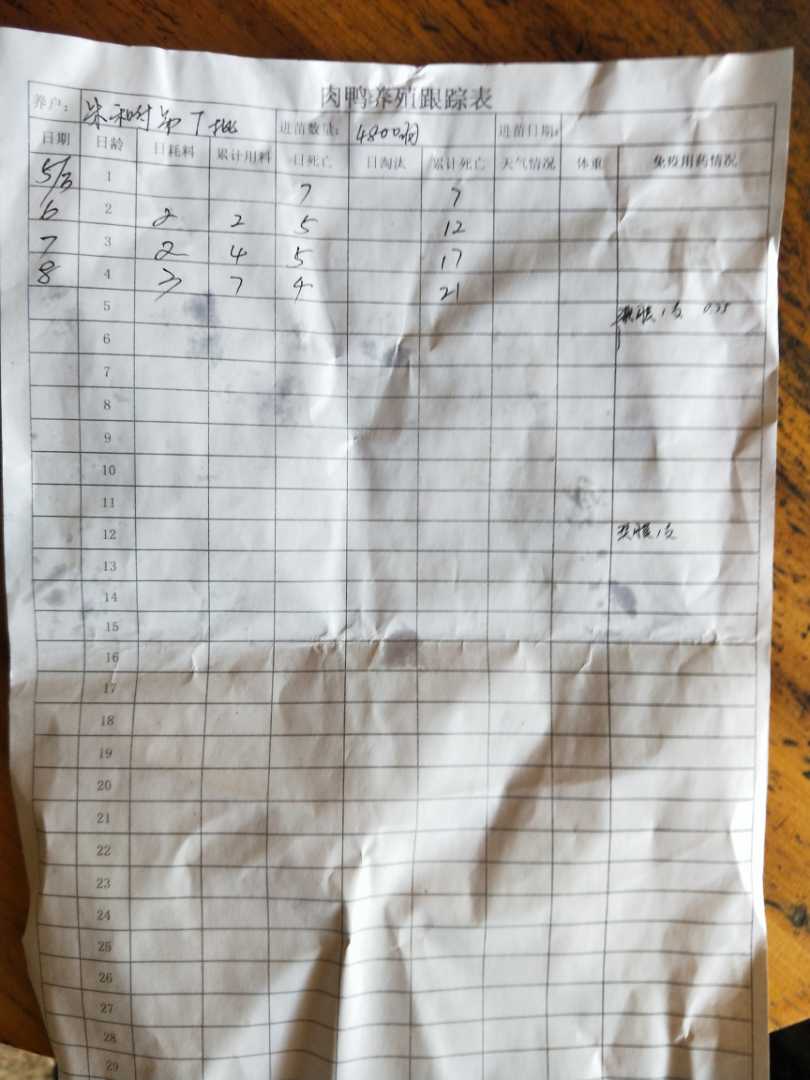 肉鸭养殖跟踪表
养户： 朱和叶第7批 进苗数量： 4800羽 进苗日期：
日期 日龄 日耗料 累计用料 日死亡 日淘汰 累计死亡 天气情况 体重 免疫用药情况
5/3 1 7 7
6 2 2 2 5 12
7 3 2 4 5 17
8 4 3 7 4 21
5
6
7
8
9
10
11
12
13
14
15
16
17
18
19
20
21
22
23
24
25
26
27
28
29